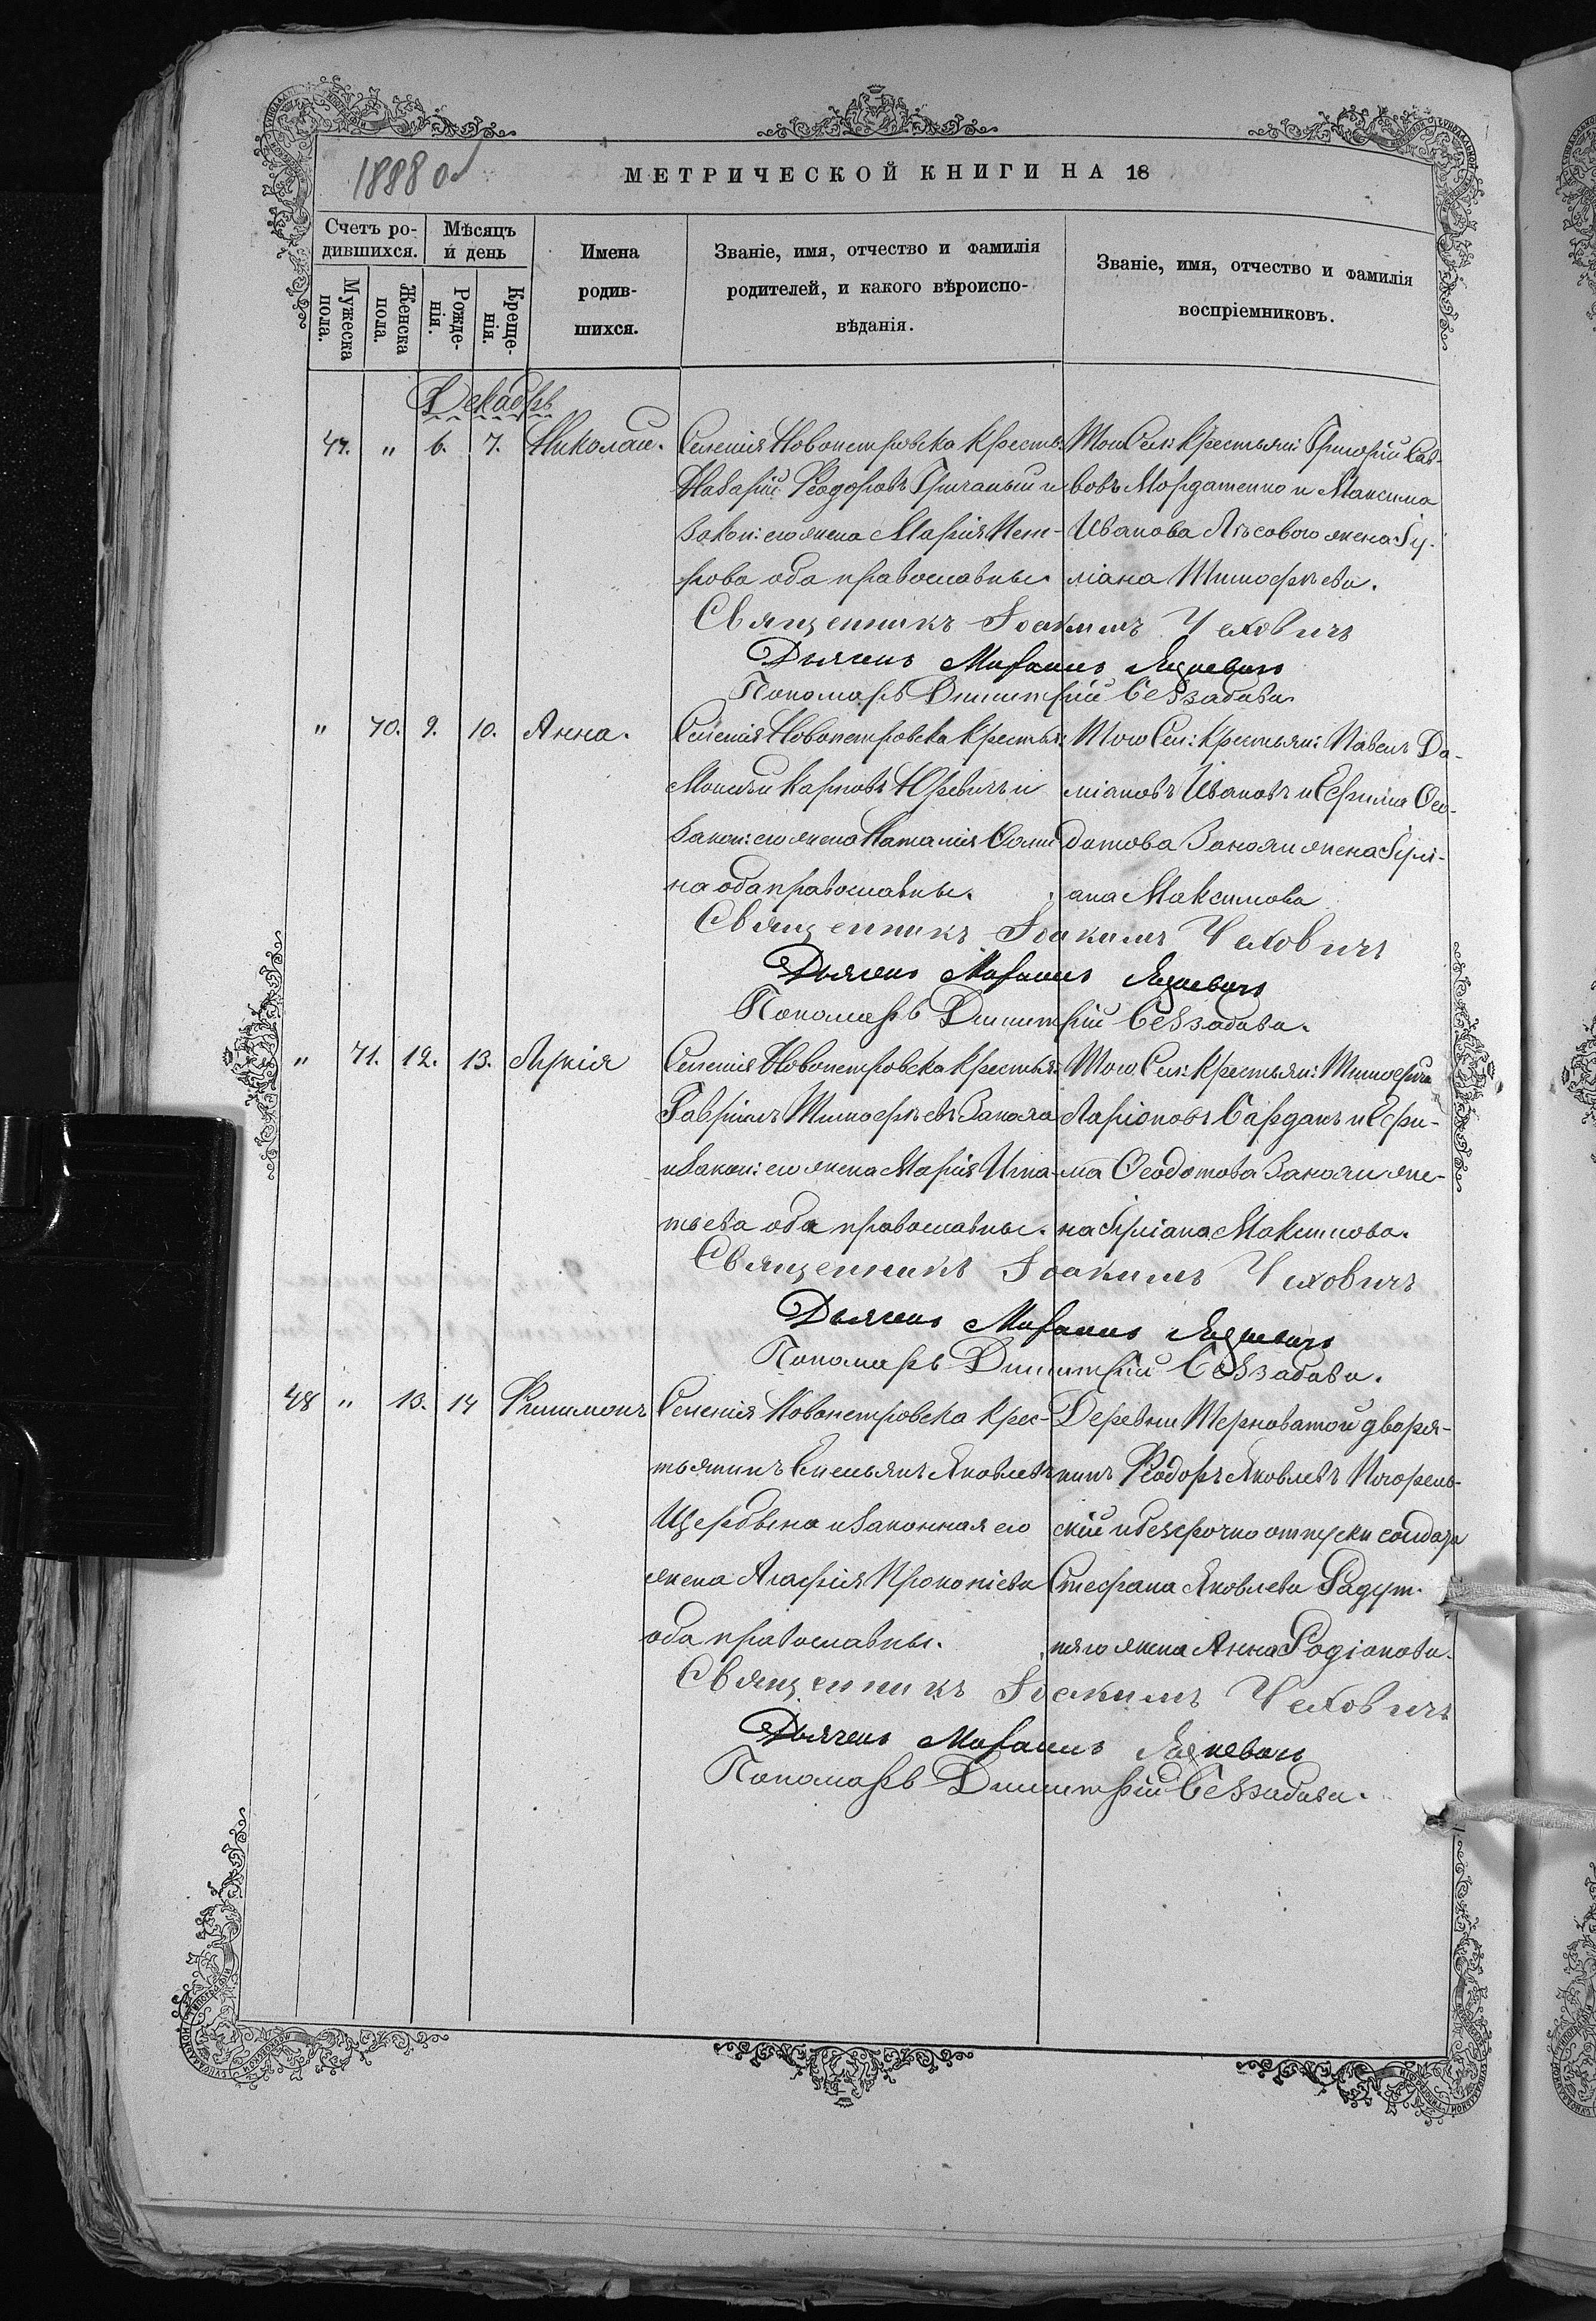 1888 од
МЕТРИЧЕСКОЙ КНИГИ НА 18
Счетъ родившихся.
Мѣсяцъ и день
Мужеска пола.
Женска пола.
Рожденія.
Крещенія.
Имена родившихся.
Званіе, имя, отчество и фамилія родителей, и какого вѣроисповѣданія.
Званіе, имя, отчество и фамилія воспріемниковъ.
Декабрь
47. " 6. 7. Николай.
Селенія Новопетровска крестья:
Назарій Ѳеодоровъ Гричаный и
закон: его жена Марія Пет-
рова оба православные
Того Сел: крестьян: Григорій Сав-
вовъ Мордатенко и Максима
Иванова Лѣсового жена Іу-
ліана Тимоѳѣева.
Священникъ Іоакимъ Чехович
Дьячекъ Михаилъ
Пономарь Димитрій Беззабава.
" 70. 9. 10. Анна.
Селенія Новопетровска крестья:
Мокій Карповъ Юревичъ и
закон: его жена Наталія
на оба православные.
Того Сел: крестьян: Павелъ Да-
міановъ Ивановъ и Ефима Ѳео-
дотова Заножи жена Іулі-
ана Максимова
Священникъ Іоакимъ Чехович
Дьячекъ Михаилъ
Пономарь Димитрій Беззабава.
" 71. 12. 13. Лукія
Селенія Новопетровска крестья:
Гавріилъ Тимоѳѣевъ
и закон: его жена Марія Игна-
тьева оба православные.
Того Сел: крестьян: Тимоѳей
Ларіоновъ Бардакъ и Ефи-
ма Ѳеодотова Заножи же-
на Іуліана Максимова.
Священникъ Іоакимъ Чехович
Дьячекъ Михаилъ
Пономарь Димитрій Беззабава.
48 " 13. 14 Филимонъ
Селенія Новопетровска крес-
тьянинъ Емельянъ Яковлевъ
Щербына и законная его
жена Агафія Прокопіева
оба православные.
Деревни Терноватой дворя-
нинъ Ѳеодоръ Яковлевъ Погорель-
скій и безсрочно отпускн солдата
Стефана Яковлева Радут-
няго жена Анна Родіонова.
Священникъ Іоакимъ Чехович
Дьячекъ Михаилъ
Пономарь Димитрій Беззабава.